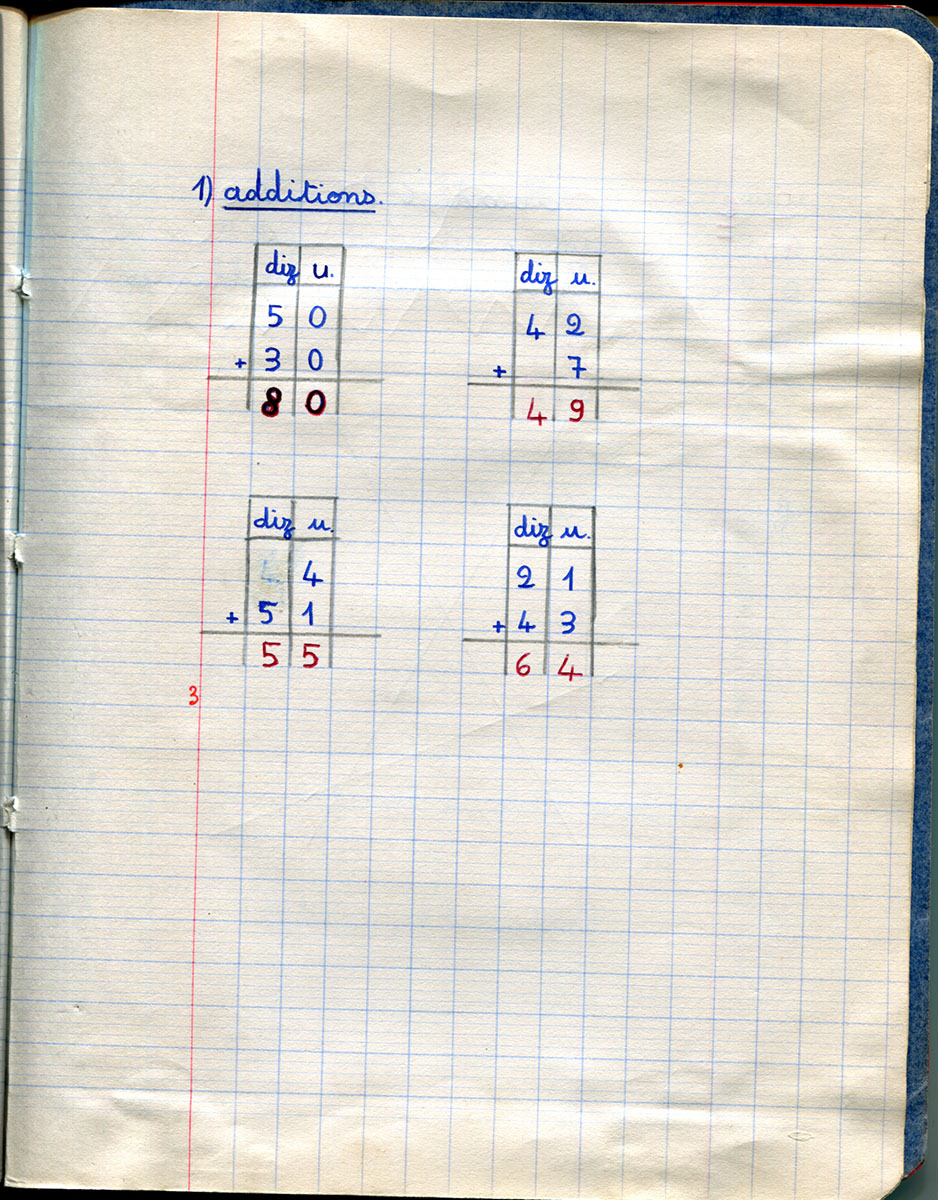 1) additions.
diz u.
5 0
+ 3 0
8 0
diz u.
4 2
+ 7
4 9
diz u.
4
+ 5 1
5 5
diz u.
2 1
+ 4 3
6 4
3